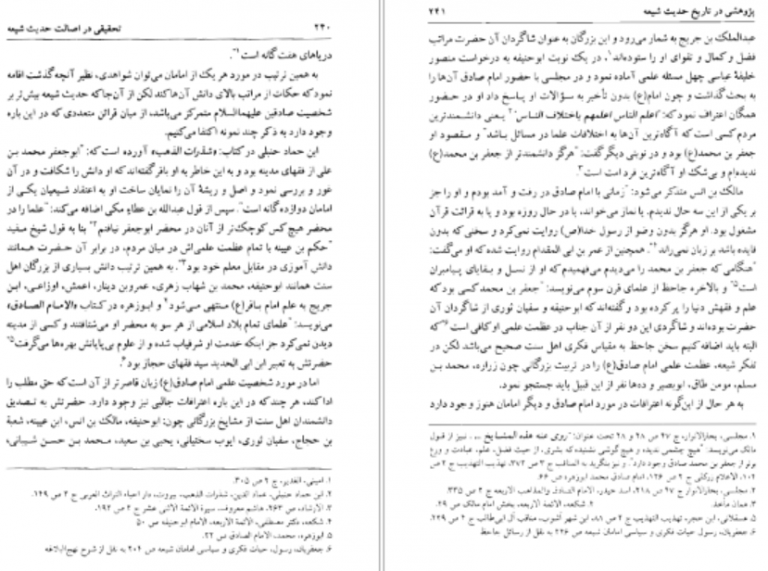 ۲۴۰ تحقیقی در اصالت حدیث شیعه
دریاهای هفت‌گانه است"۱.
به همین ترتیب در مورد هر یک از امامان می‌توان شواهدی، نظیر آنچه گذشت اقامه
نمود که حکات از مراتب بالای دانش آن‌ها کند لکن از آن‌جا که حدیث شیعه بیش‌تر بر
شخصیت صادقین علیهماالسلام متمرکز می‌باشد، از میان قرائن متعددی که در این باره
وجود دارد به ذکر چند نمونه اکتفا می‌کنیم.
ابن حماد حنبلی در کتاب: «شذرات الذهب» آورده است که: "ابوجعفر محمد بن
علی از فقهای مدینه بود و به این خاطر به او باقر گفته‌اند که او دانش را شکافت و در آن
غور و بررسی نمود و اصل و ریشهٔ آن را نمایان ساخت او به اعتقاد شیعیان یکی از
امامان دوازده‌گانه است". سپس از قول عبدالله بن عطاء مکی اضافه می‌کند: "علما را در
محضر هیچ کس کوچک‌تر از آنان در محضر ابوجعفر نیافتم"۲ بنا به قول شیخ مفید
"حکم بن عیینه با تمام عظمت علمی‌اش در میان مردم، در برابر آن حضرت همانند
دانش آموزی در مقابل معلم خود بود"۳. به همین ترتیب دانش بسیاری از بزرگان اهل
سنت همانند ابوحنیفه، محمد بن شهاب زهری، عمروبن دینار، اعمش، اوزاعی، ابن
جریج به علم امام باقر(ع) منتهی می‌شود۴ و ابوزهره در کتاب «الامام الصادق»
می‌نویسد: "علمای تمام بلاد اسلامی از هر سو به محضر او می‌شتافتند و کسی از مدینه
دیدن نمی‌کرد جز اینکه خدمت او شرفیاب شده و از علوم بی‌پایانش بهره‌ها می‌گرفت"۵
حضرتش به تعبیر ابن ابی الحدید سید فقهای حجاز بود۶.
اما در مورد شخصیت علمی امام صادق(ع) زبان قاصرتر از آن است که حق مطلب را
ادا کند، هر چند که در این باره اعترافات جالبی نیز وجود دارد. حضرتش به تصدیق
دانشمندان اهل سنت از مشایخ بزرگانی چون: ابوحنیفه، مالک بن انس، ابن عیینه، شعبة
بن حجاج، سفیان ثوری، ایوب سختیانی، یحیی بن سعید، محمد بن حسن شیبانی،
۱. امینی، الغدیر، ج ۲ ص ۳۰۵.
۲. ابن حماد حنبلی، عماد الدین، شذرات الذهب، بیروت، دار احیاء التراث العربی ج ۲ ص ۱۴۹.
۳. الارشاد، ص ۲۶۳، هاشم معروف، سیرة الائمة الاثنی عشر ج ۲ ص ۱۹۲.
۴. شکعه، دکتر مصطفی، الائمة الاربعه، الامام ابوحنیفه ص ۵۰
۵. ابوزهره، محمد، الامام الصادق ص ۲۲.
۶. جعفریان، رسول، حیات فکری و سیاسی امامان شیعه ص ۲۰۴ به نقل از شرح نهج‌البلاغه
پژوهشی در تاریخ حدیث شیعه ۲۴۱
عبدالملک بن جریج به شمار می‌رود و این بزرگان به عنوان شاگردان آن حضرت مراتب
فضل و کمال و تقوای او را ستوده‌اند۱، در یک نوبت ابوحنیفه به درخواست منصور
خلیفهٔ عباسی چهل مسئله علمی آماده نمود و در مجلسی با حضور امام صادق آن‌ها را
به بحث گذاشت و چون امام(ع) بدون تأخیر به سؤالات او پاسخ داد او در حضور
همگان اعتراف نمود که: "اعلم الناس اعلمهم باختلاف الناس"۲ یعنی دانشمندترین
مردم کسی است که آگاه‌ترین آن‌ها به اختلافات علما در مسائل باشد" و مقصود او
جعفر بن محمد(ع) بود و در نوبتی دیگر گفت: "هرگز دانشمندتر از جعفر بن محمد(ع)
ندیده‌ام و بی‌شک او آگاه‌ترین فرد امت است"۳.
مالک بن انس متذکر می‌شود: "زمانی با امام صادق در رفت و آمد بودم و او را جز
بر یکی از این سه حال ندیدم. یا نماز می‌خواند، یا در حال روزه بود و یا به قرائت قرآن
مشغول بود. او هرگز بدون وضو از رسول خدا(ص) روایت نمی‌کرد و سخنی که بدون
فایده باشد بر زبان نمی‌راند"۴. همچنین از عمر بن ابی المقدام روایت شده که او می‌گفت:
"هنگامی که جعفر بن محمد را می‌دیدم می‌فهمیدم که او از نسل و بقایای پیامبران
است"۵ و بالاخره جاحظ از علمای قرن سوم می‌نویسد: "جعفر بن محمد کسی بود که
علم و فقهش دنیا را پر کرده بود و گفته‌اند که ابوحنیفه و سفیان ثوری از شاگردان آن
حضرت بوده‌اند و شاگردی این دو نفر از آن جناب در عظمت علمی او کافی است"۶ که
البته باید اضافه کنیم سخن جاحظ به مقیاس فکری اهل سنت صحیح می‌باشد لکن در
تفکر شیعه، عظمت علمی امام صادق(ع) را در تربیت بزرگانی چون زراره، محمد بن
مسلم، مومن طاق، ابوبصیر و ده‌ها نفر از این قبیل باید جستجو نمود.
به هر حال از این‌گونه اعترافات در مورد امام صادق و دیگر امامان هنوز وجود دارد
۱. مجلسی، بحارالانوار، ج ۴۷ ص ۲۸ و ۲۸ تحت عنوان: "روی عنه هذه المشایخ ... نیز از قبول
مالک می‌نویسد: "هیچ چشمی ندیده و هیچ گوشی نشنیده که بشری، از حیث فضل، علم، عبادت و ورع
برتر از جعفر بن محمد صادق وجود دارد." و نیز بنگرید به المناقب ج ۳ ص ۳۷۲، تهذیب التهذیب ج ۲ ص
۱۰۲، الاعلام زرکلی ج ۲ ص ۱۲۶، امام صادق محمد ابوزهره ص ۶۶.
۲. مجلسی، بحارالانوار ج ۴۷ ص ۲۱۸، اسد حیدر، الامام الصادق والمذاهب الاربعه ج ۲ ص ۳۳۵.
۳. همان مأخذ. ۴. شکعه، الائمة الاربعه، بخش امام مالک ص ۲۹.
۵. عسقلانی، ابن حجر، تهذیب التهذیب ج ۲ ص ۸۱، ابن شهر آشوب، مناقب آل ابی‌طالب ج ۴ ص ۲۲۹.
۶. جعفریان، رسول، حیات فکری و سیاسی امامان شیعه ص ۲۴۶ به نقل از رسائل جاحظ